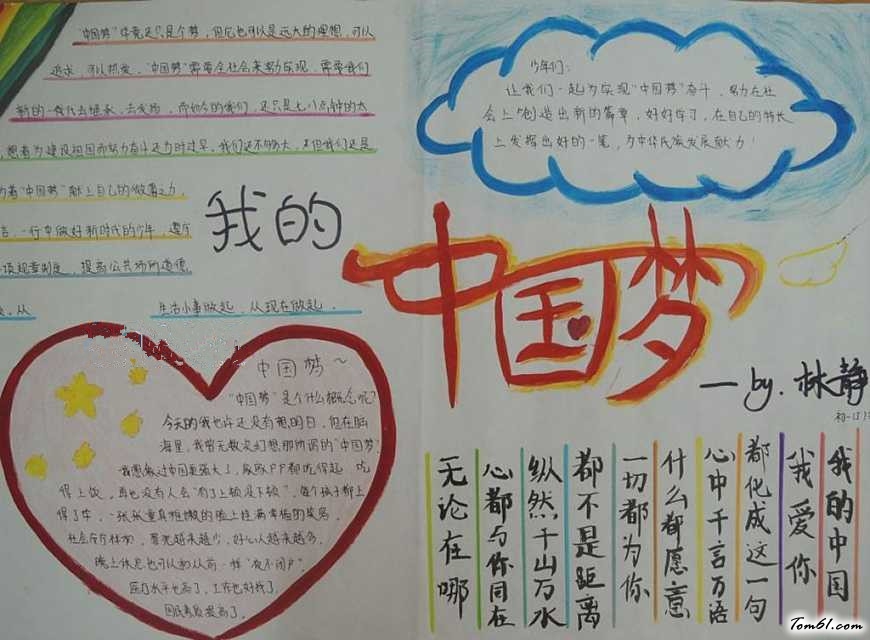 "中国梦"毕竟还只是个梦,但它也可以是远大的理想,可以
追求,可以热爱,"中国梦"需要全社会来努力实现,需要我们
新的一代去继承,去发扬,而如今的我们,还只是七八点钟的太
想着为建设祖国而努力奋斗还为时过早,我们还不够大,但我们还是
为着"中国梦"献上自己的微薄之力,
言,一行中做好新时代的少年,遵守
规章制度,提高公共场所道德,
从
生活小事做起,从现在做起.
我的
中国梦
—by.林静
少年们:
让我们一起为实现"中国梦"奋斗,努力在社
会上创造出新的篇章,好好学习,在自己的特长
上发挥出好的一笔,为中华民族发展献力!
中国梦~
"中国梦"是个什么概念呢?
今天的我也许还没有想明白,但在脑
海里,我曾无数次幻想那所谓的"中国梦".
我想象过中国更强大了,家家户户都吃得起 吃
得上饭,再也没有人会"有了上顿没下顿",每个孩子都上
得了学,一张张童真稚嫩的脸上挂满幸福的笑容,
社会合作体系,罪犯越来越少,好心人越来越多,
晚上休息也可以和从前一样"夜不闭户",
医疗水平也高了,工作也好找了,
国民素质提高了.
我的中国
我爱你
都化成这一句
心中千言万语
什么都愿意
一切都为你
都不是距离
纵然千山万水
心都与你同在
无论在哪
Tom61.com